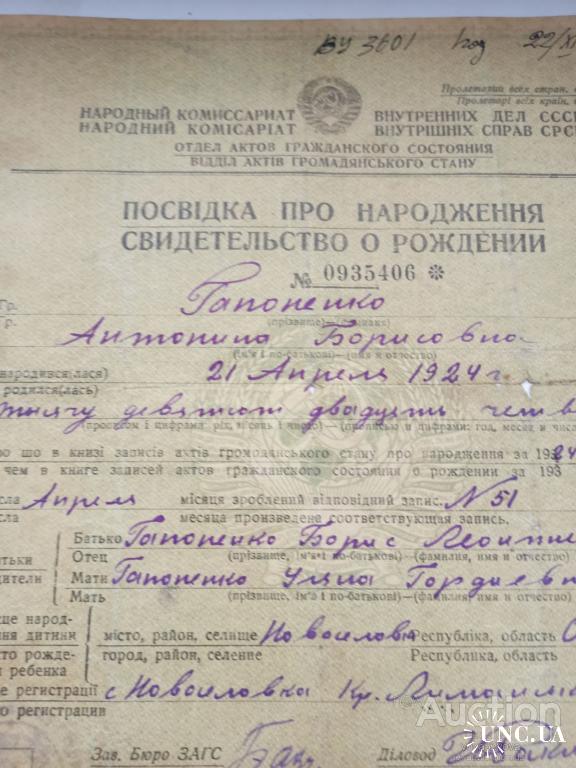 ВУ 3601 Код 22/XI
Пролетарии всех стран,
НАРОДНЫЙ КОМИССАРИАТ ВНУТРЕННИХ ДЕЛ СССР
Пролетарі всіх країн,
НАРОДНИЙ КОМІСАРІАТ ВНУТРІШНІХ СПРАВ СРСР
ОТДЕЛ АКТОВ ГРАЖДАНСКОГО СОСТОЯНИЯ
ВІДДІЛ АКТІВ ГРОМАДЯНСЬКОГО СТАНУ
ПОСВІДКА ПРО НАРОДЖЕННЯ
СВИДЕТЕЛЬСТВО О РОЖДЕНИИ
№ 0935406 *
Гр. Гапоненко
(прізвище)—(фамилия)
Антонина Борисовна
(ім'я і по-батькові)—(имя и отчество)
народився(лася) 21 Апреля 1924 г
родился(лась)
тысячу девятсот двадцать четв
(прописом і цифрами: рік, місяць і число)—(прописью и цифрами: год, месяц и число
про що в книзі записів актів громадянського стану про народження за 1924
чем в книге записей актов гражданского состояния о рождении за 193
числа Апреля місяця зроблений відповідний запис. № 51
числа месяца произведена соответствующая запись.
Батько Гапоненко Борис
Отец (прізвище, ім'я і по-батькові)—(фамилия, имя и отчество)
Мати Гапоненко Улита Гордиевн
Мать (прізвище, ім'я і по-батькові)—(фамилия, имя и отчество)
місто, район, селище Новоселовка Республіка, область
город, район, селение Республика, область
ребенка
регистрації с Новоселовка Кр. Лиманск
регистрации
Зав. Бюро ЗАГС Діловод
Auction
UNC.UA